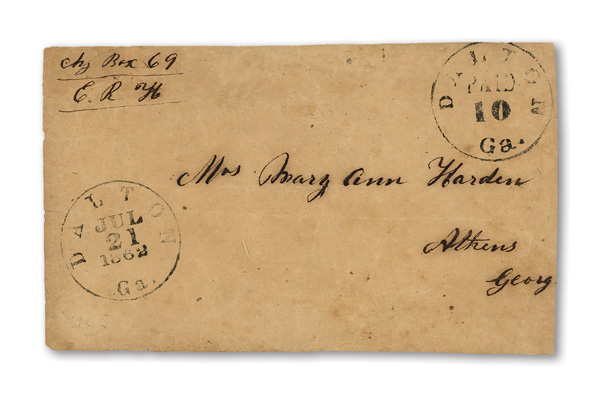 Chg Box 69
E. R. H
DALTON
PAID
10
Ga.
Mrs Mary Ann Harden
Athens
Georg
DALTON
JUL
21
1862
Ga.